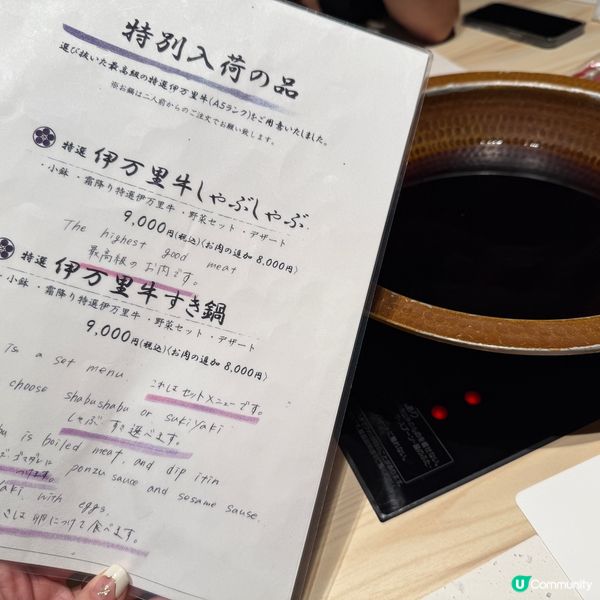 特別入荷の品
選び抜いた最高級の特選伊万里牛(A5ランク)をご用意いたしました。
※お鍋は二人前からのご注文でお願い致します。
特選 伊万里牛しゃぶしゃぶ
・小鉢・霜降り特選伊万里牛・野菜セット・デザート
9,000円(税込)(お肉の追加 8,000円)
The highest good meat
最高級のお肉です。
特選 伊万里牛すき鍋
・小鉢・霜降り特選伊万里牛・野菜セット・デザート
9,000円(税込)(お肉の追加 8,000円)
Is a set menu
これはセットメニューです。
choose shabushabu or sukiyaki
しゃぶ すき選べます。
bu is boiled meat, and dip itin
ゴマダレに
つけます。
ponzu sauce and sesame sause.
aki with eggs.
きは 卵につけて食べます。
U Community